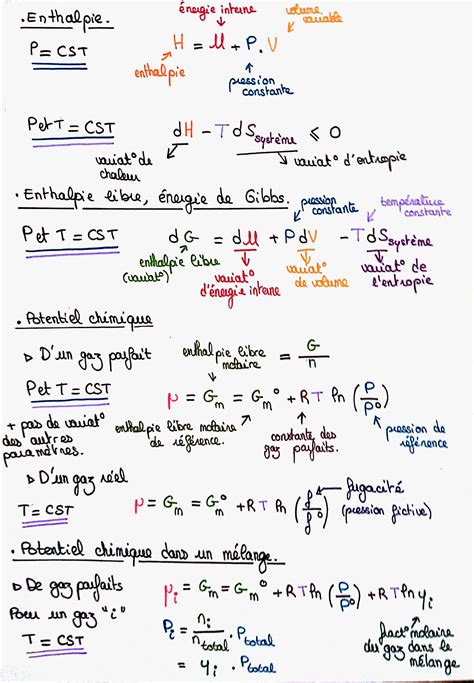 . Enthalpie.
énergie interne
volume variable
P = CST
H = U + P. V
enthalpie
pression constante
P et T = CST
dH - TdS système ⩽ 0
variat° de chaleur
variat° d'entropie
. Enthalpie libre, énergie de Gibbs.
pression constante
température constante
P et T = CST
dG = dU + PdV - TdS système
enthalpie libre (variat°)
variat° d'énergie interne
variat° de volume
variat° de l'entropie
. Potentiel chimique
▷ D'un gaz parfait
enthalpie libre molaire = G/n
P et T = CST
μ = Gm = Gm° + RT ln (P/P°)
+ pas de variat° des autres paramètres.
enthalpie libre molaire de référence.
constante des gaz parfaits.
pression de référence
▷ D'un gaz réel
T = CST
μ = Gm = Gm° + RT ln (f/f°)
fugacité (pression fictive)
. Potentiel chimique dans un mélange.
▷ De gaz parfaits
Pour un gaz "i"
T = CST
μi = Gm = Gm° + RT ln (P/P°) + RT ln yi
Pi = ni/ntotal . Ptotal
= yi . Ptotal
fract° molaire du gaz dans le mélange